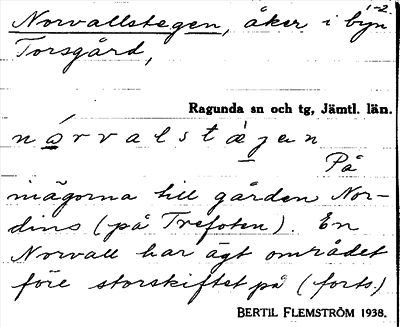 1-2.
Norvallstegen, åker i byn
Torsgård,
Ragunda sn och tg, Jämtl. län.
nǫ́rvalstä̀gen
På
inägorna till gården Nor-
dins (på Trefoten). En
Norvall har ägt området
före storskiftet på (forts.)
BERTIL FLEMSTRÖM 1938.